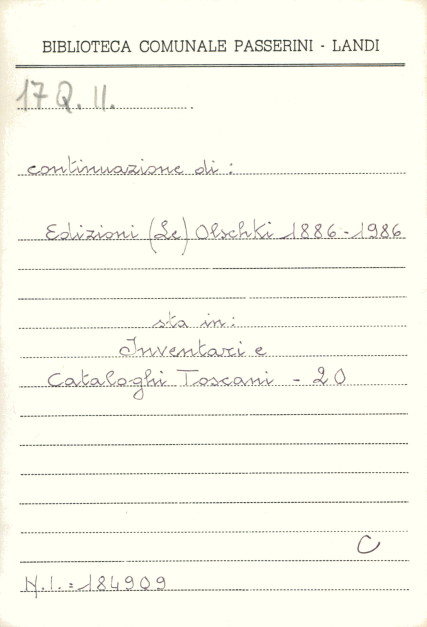 BIBLIOTECA COMUNALE PASSERINI - LANDI
17 Q. II.
continuazione di :
Edizioni (Le) Olschki 1886-1986
sta in:
Inventari e
Cataloghi Toscani - 20
C
N.I. = 184909